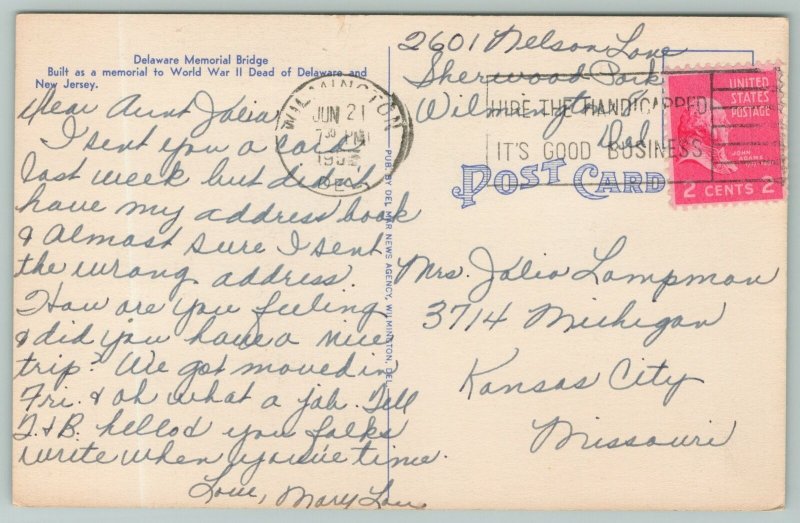 Delaware Memorial Bridge
Built as a memorial to World War II Dead of Delaware and
New Jersey.
Dear Aunt Julia
I sent you a card
last week but didn't
have my address book
& Almost sure I sent
the wrong address.
How are you feeling
& did you have a nice
trip? We got moved in
Fri. & oh what a job. Tell
T. & B. hello & you folks
write when you've time.
Love, Mary Lou
PUB. BY DEL MAR NEWS AGENCY, WILMINGTON, DEL.
2601 Nelson Lane
Sherwood Park
Wilmington 8,
Del
WILMINGTON
JUN 21
7 30 PM
DEL
HIRE THE HANDICAPPED
IT'S GOOD BUSINESS
UNITED
STATES
POSTAGE
JOHN
ADAMS
2 CENTS 2
POST CARD
Mrs. Julia Lampman
3714 Michigan
Kansas City
Missouri